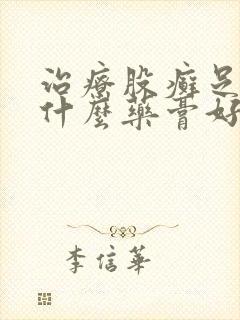 治療股癬足
什麼藥膏好
李信華